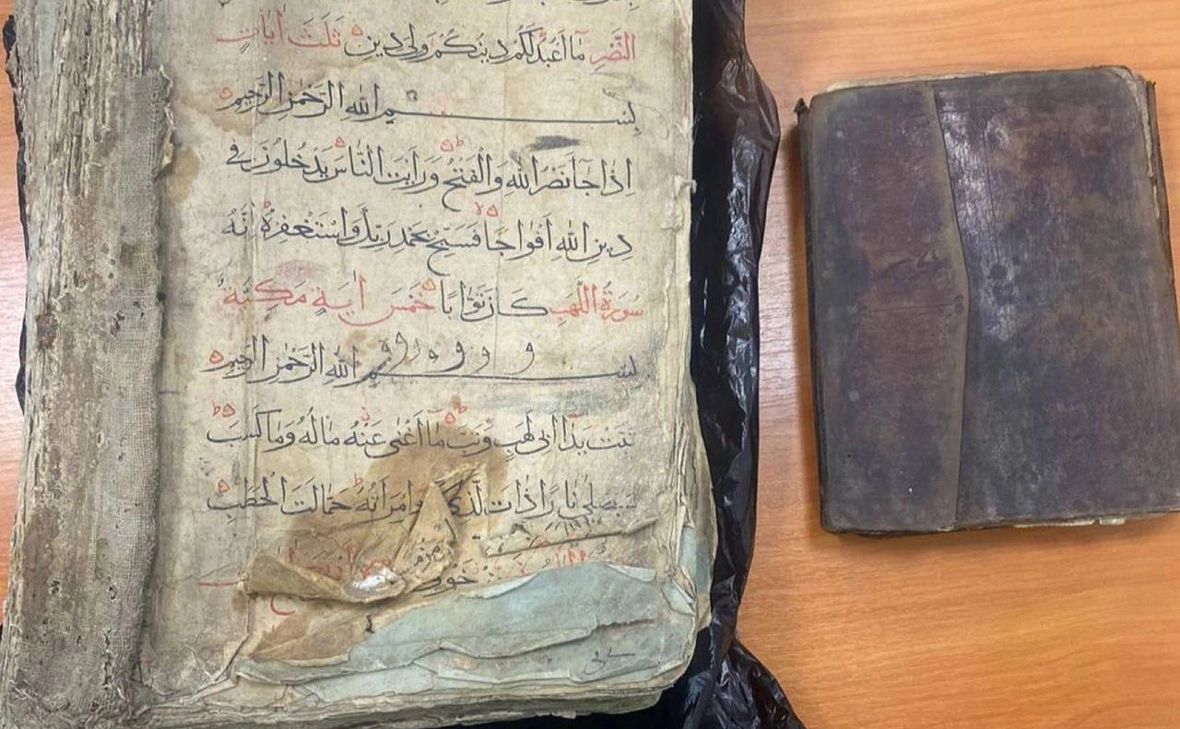 النصر ما اعبد لكم دينكم ولى دين ثلث ايات
بسم الله الرحمن الرحيم
اذا جا نصر الله والفتح ورايت الناس يدخلون فى
دين الله افواجا فسبح بحمد ربك واستغفره انه
سورة اللهب كان توابا خمس اية مكية
و و و و و و
بسم الله الرحمن الرحيم
تبت يدا ابى لهب وتب ما اغنى عنه ماله وما كسب
سيصلى نارا ذات لهب وامراته حمالت الحطب